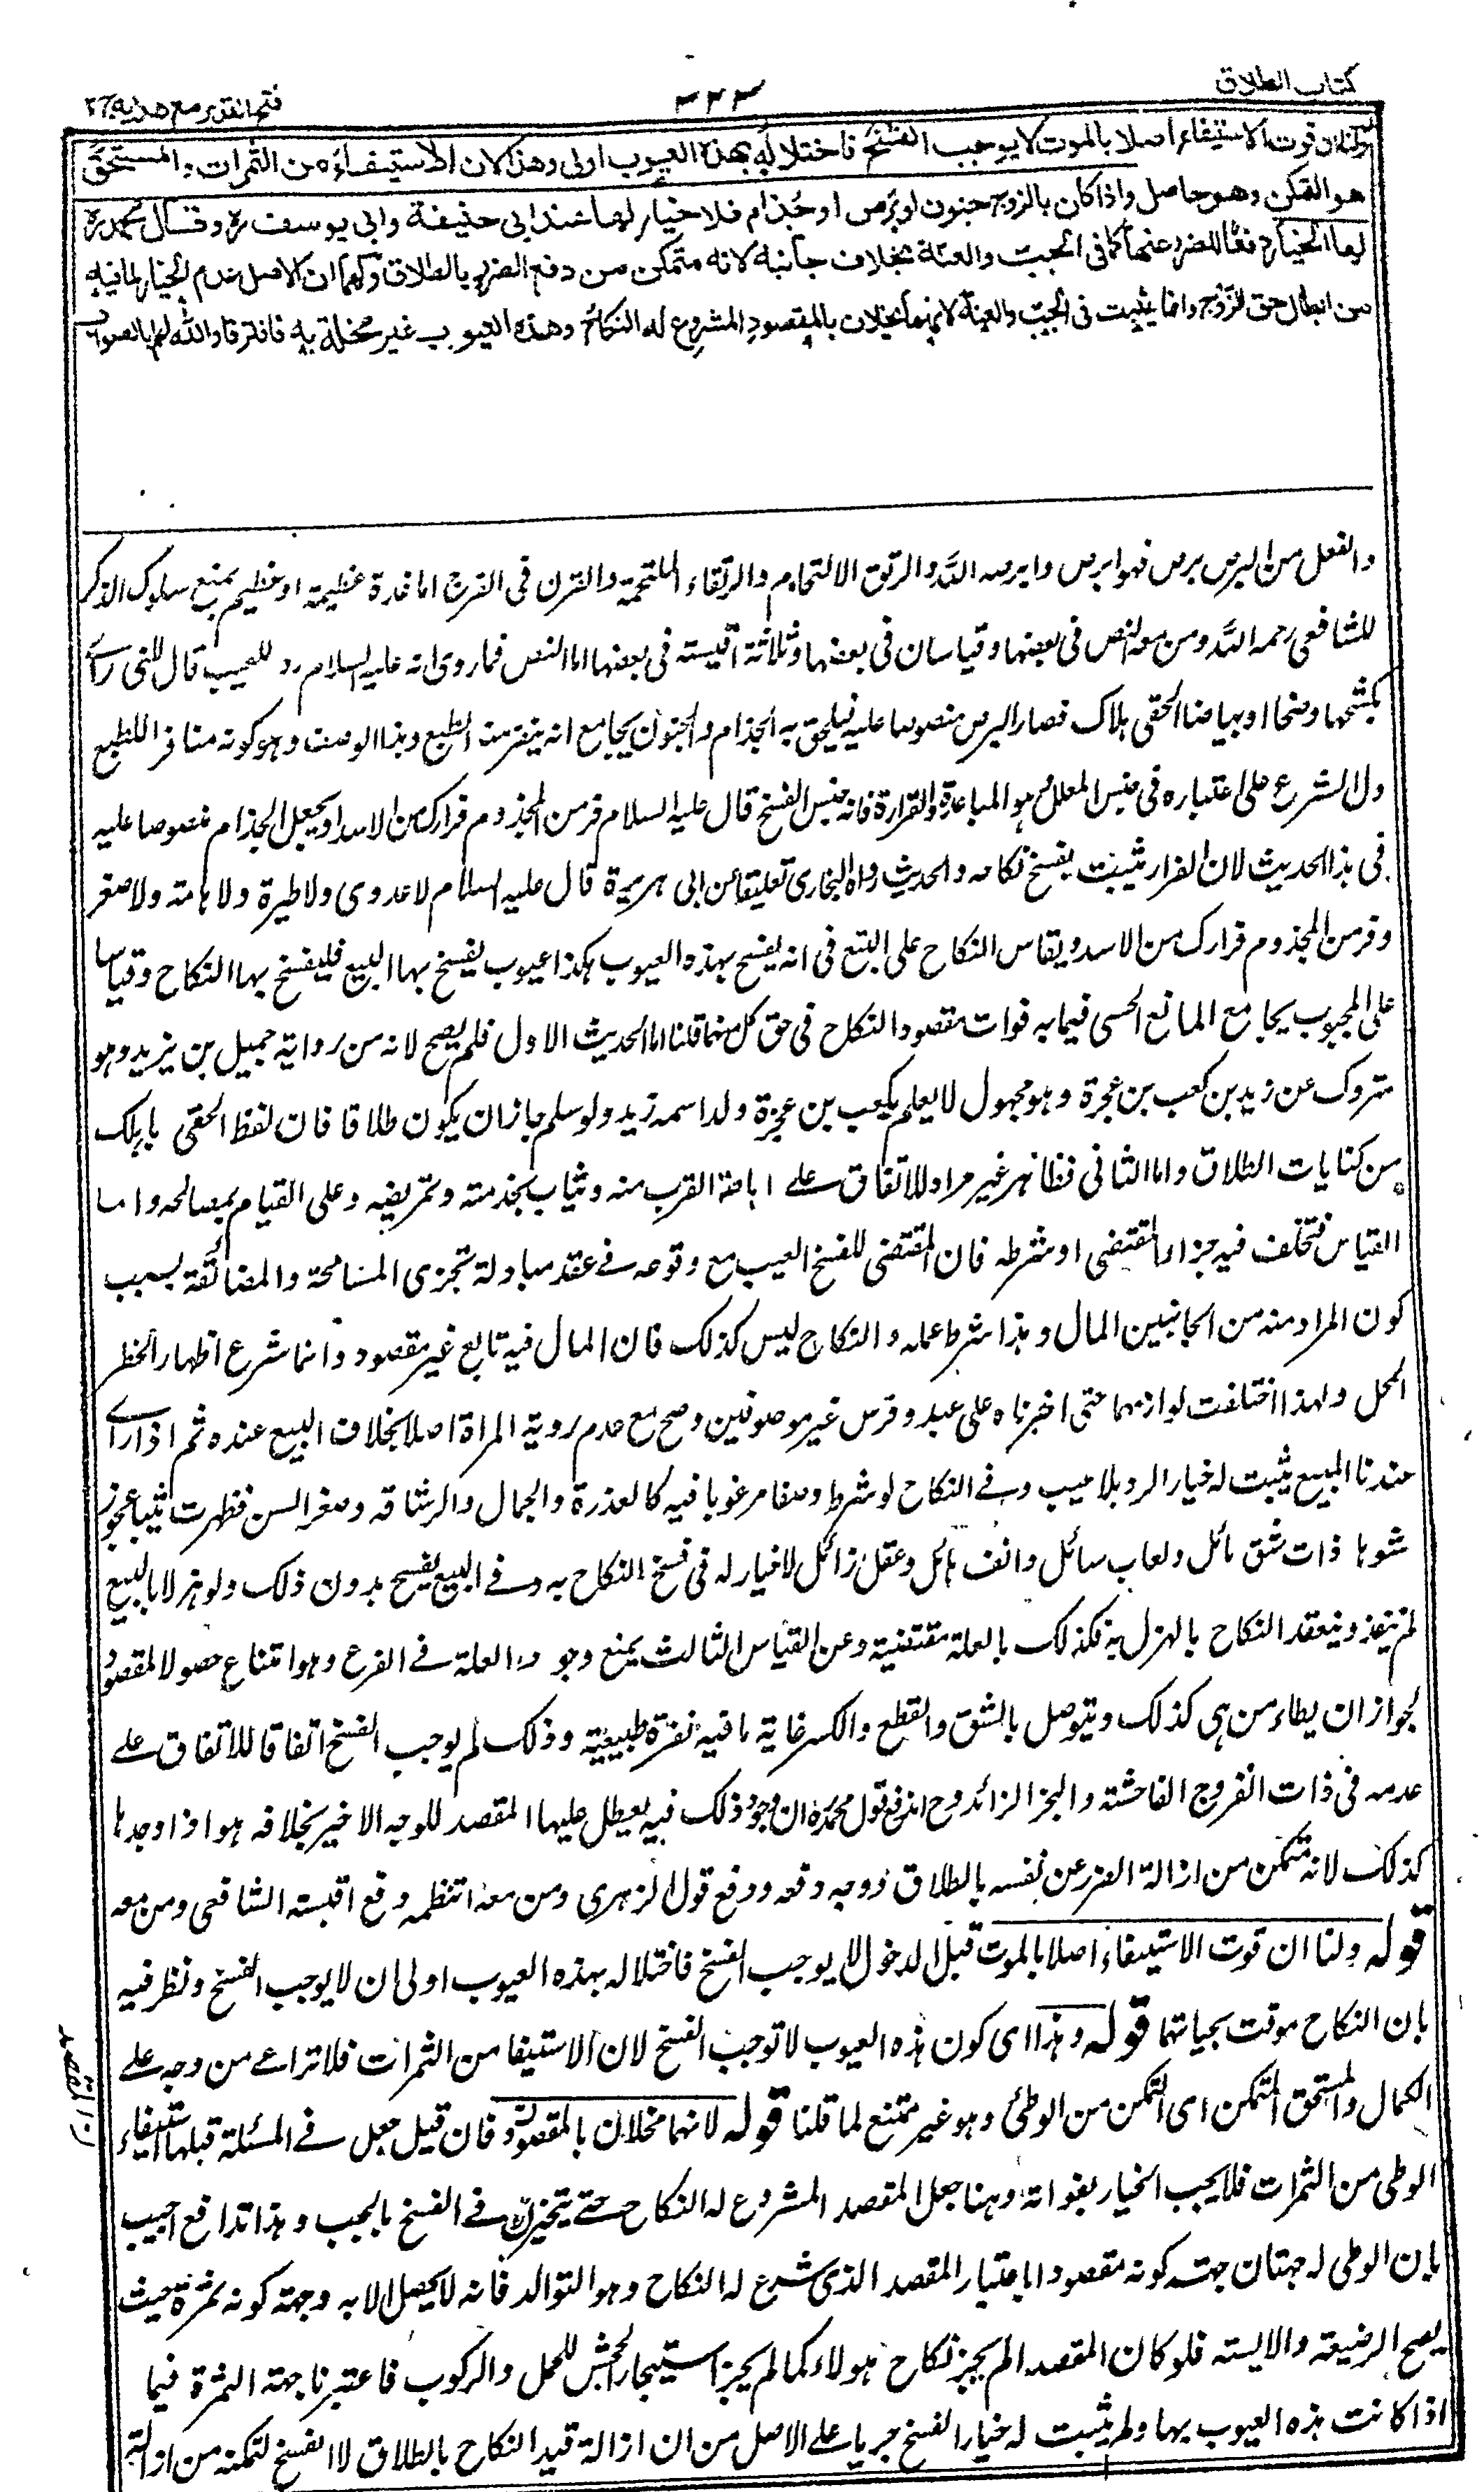 كتاب الطلاق
٣٢٣
فتح القدير مع هدايه ج٢
ولنا ان فوت الاستيفاء اصلا بالموت لا يوجب الفسخ فاختلاله بهذه العيوب اولى وهذا لان الاستيفاء من الثمرات والمستحق
هو التمكن وهو حاصل واذا كان بالزوج جنون او برص او جذام فلا خيار لها عند ابى حنيفة وابى يوسف رح وقال محمد رح
لها الخيار دفعا للضرر عنها كما فى الجب والعنة بخلاف جانبه لانه متمكن من دفع الضرر بالطلاق ولهما ان الاصل عدم الخيار لما فيه
من ابطال حق الزوج وانما يثبت فى الجب والعنة لانهما يخلان بالمقصود المشروع له النكاح وهذه العيوب غير مخلة به فافترقا والله اعلم بالصواب
والفعل من البرص برص فهو ابرص وابرصه الله والرتق الالتحام والرتقاء الملتحمة والقرن فى الفرج اما غدة غليظة او عظيم يمنع سلوك الذكر
للشافعى رحمه الله ومن معه النص فى بعضها وقياسان فى بعضها وثلاثة اقيسة فى بعضها اما النص فما روى انه عليه السلام رد للعيب قال للتى راى
بكشحها وضحا او بياضا الحقى باهلك فصار البرص منصوصا عليه فيلحق به الجذام والجنون بجامع انه ينفر منه الطبع وهذا الوصف وهو كونه منافرا للطبع
دل الشرع على اعتباره فى جنس المعلل هو المباعدة والفرارة فانه جنس الفسخ قال عليه السلام فر من المجذوم فرارك من الاسد او يجعل الجذام منصوصا عليه
فى هذا الحديث لان الفرار يثبت بفسخ نكاحه والحديث رواه البخارى تعليقا عن ابى هريرة قال عليه السلام لا عدوى ولا طيرة ولا هامة ولا صفر
وفر من المجذوم فرارك من الاسد ويقاس النكاح على البيع فى انه يفسخ بهذه العيوب هكذا عيوب يفسخ بها البيع فليفسخ بها النكاح وقياسا
على المجبوب بجامع المانع الحسى فيما به فوات مقصود النكاح فى حق كل منهما قلنا اما الحديث الاول فلم يصح لانه من رواية جميل بن يزيد وهو
متروك عن زيد بن كعب بن عجرة وهو مجهول لا يعلم لكعب بن عجرة ولد اسمه زيد ولو سلم جاز ان يكون طلاقا فان لفظ الحقى باهلك
من كنايات الطلاق واما الثانى فظاهر غير مراد للاتفاق على اباحة القرب منه ويثاب بخدمته وتمريضه وعلى القيام بمصالحه واما
القياس فتخلف فيه جزء المقتضى او شرطه فان المقتضى للفسخ العيب مع وقوعه فى عقد مبادلة تجزى المسامحة والمضائقة بسبب
كون المراد منه من الجانبين المال وهذا شرط عمله والنكاح ليس كذلك فان المال فيه تابع غير مقصود وانما شرع اظهار الخطر
المحل ولهذا اختلفت لوازمهما حتى اخبرناه على عبد وفرس غير موصوفين وصح مع عدم روية المراة اصلا بخلاف البيع عنده ثم اذا راى
عندنا المبيع يثبت له خيار الرد بلا عيب وفى النكاح لو شرط وصفا مرغوبا فيه كالعذرة والجمال والرشاقة وصغر السن فظهرت ثيبا عجوز
شوها ذات شق مائل ولعاب سائل وانف هائل وعقل زائل لا خيار له فى فسخ النكاح به وفى البيع يفسخ بدون ذلك ولو هزلا بالبيع
لم ينفذ وينعقد النكاح بالهزل به فكذلك بالعلة مقتضية وعن القياس الثالث يمنع وجود العلة فى الفرع وهو امتناع حصول المقصود
لجواز ان يطاء من هى كذلك ويتوصل بالشق والقطع والكسر غاية ما فيه نفرة طبيعية وذلك لم يوجب الفسخ اتفاقا للاتفاق على
عدمه فى ذات الفروج الفاحشة والبخر الزائد وح اندفع قول محمد رح ان وجود ذلك فيه يعطل عليها المقصد للوجه الاخير بخلافه هو اذا وجدها
كذلك لانه متمكن من ازالة الضرر عن نفسه بالطلاق ووجه دفعه ودفع قول الزهرى ومن معه انتظمه دفع اقيسة الشافعى ومن معه
قوله ولنا ان فوت الاستيفاء اصلا بالموت قبل الدخول لا يوجب الفسخ فاختلاله بهذه العيوب اولى ان لا يوجب الفسخ ونظر فيه
بان النكاح موقت بحياتهما قوله وهذا اى كون هذه العيوب لا توجب الفسخ لان الاستيفا من الثمرات فلا تراعى من وجه على
الكمال والمستحق التمكن اى التمكن من الوطئ وهو غير ممتنع لما قلنا قوله لانهما مخلان بالمقصود فان قيل جعل فى المسئلة قبلها استيفاء
الوطى من الثمرات فلا يجب الخيار بفواته وهنا جعل المقصد المشروع له النكاح حتى يتخيرن فى الفسخ بالجب وهذا تدافع اجيب
بان الوطى له جهتان جهة كونه مقصودا باعتبار المقصد الذى شرع له النكاح وهو التوالد فانه لا يحصل الا به وجهة كونه ثمرة حيث
يصح الرضيعة والايسة فلو كان المقصد الم يجز نكاح هولاء كما لم يجز استيجار الجحش للحمل والركوب فاعتبرنا جهة الثمرة فيما
اذا كانت هذه العيوب بها ولم يثبت له خيار الفسخ جريا على الاصل من ان ازالة قيد النكاح بالطلاق لا الفسخ لتمكنه من ازالته